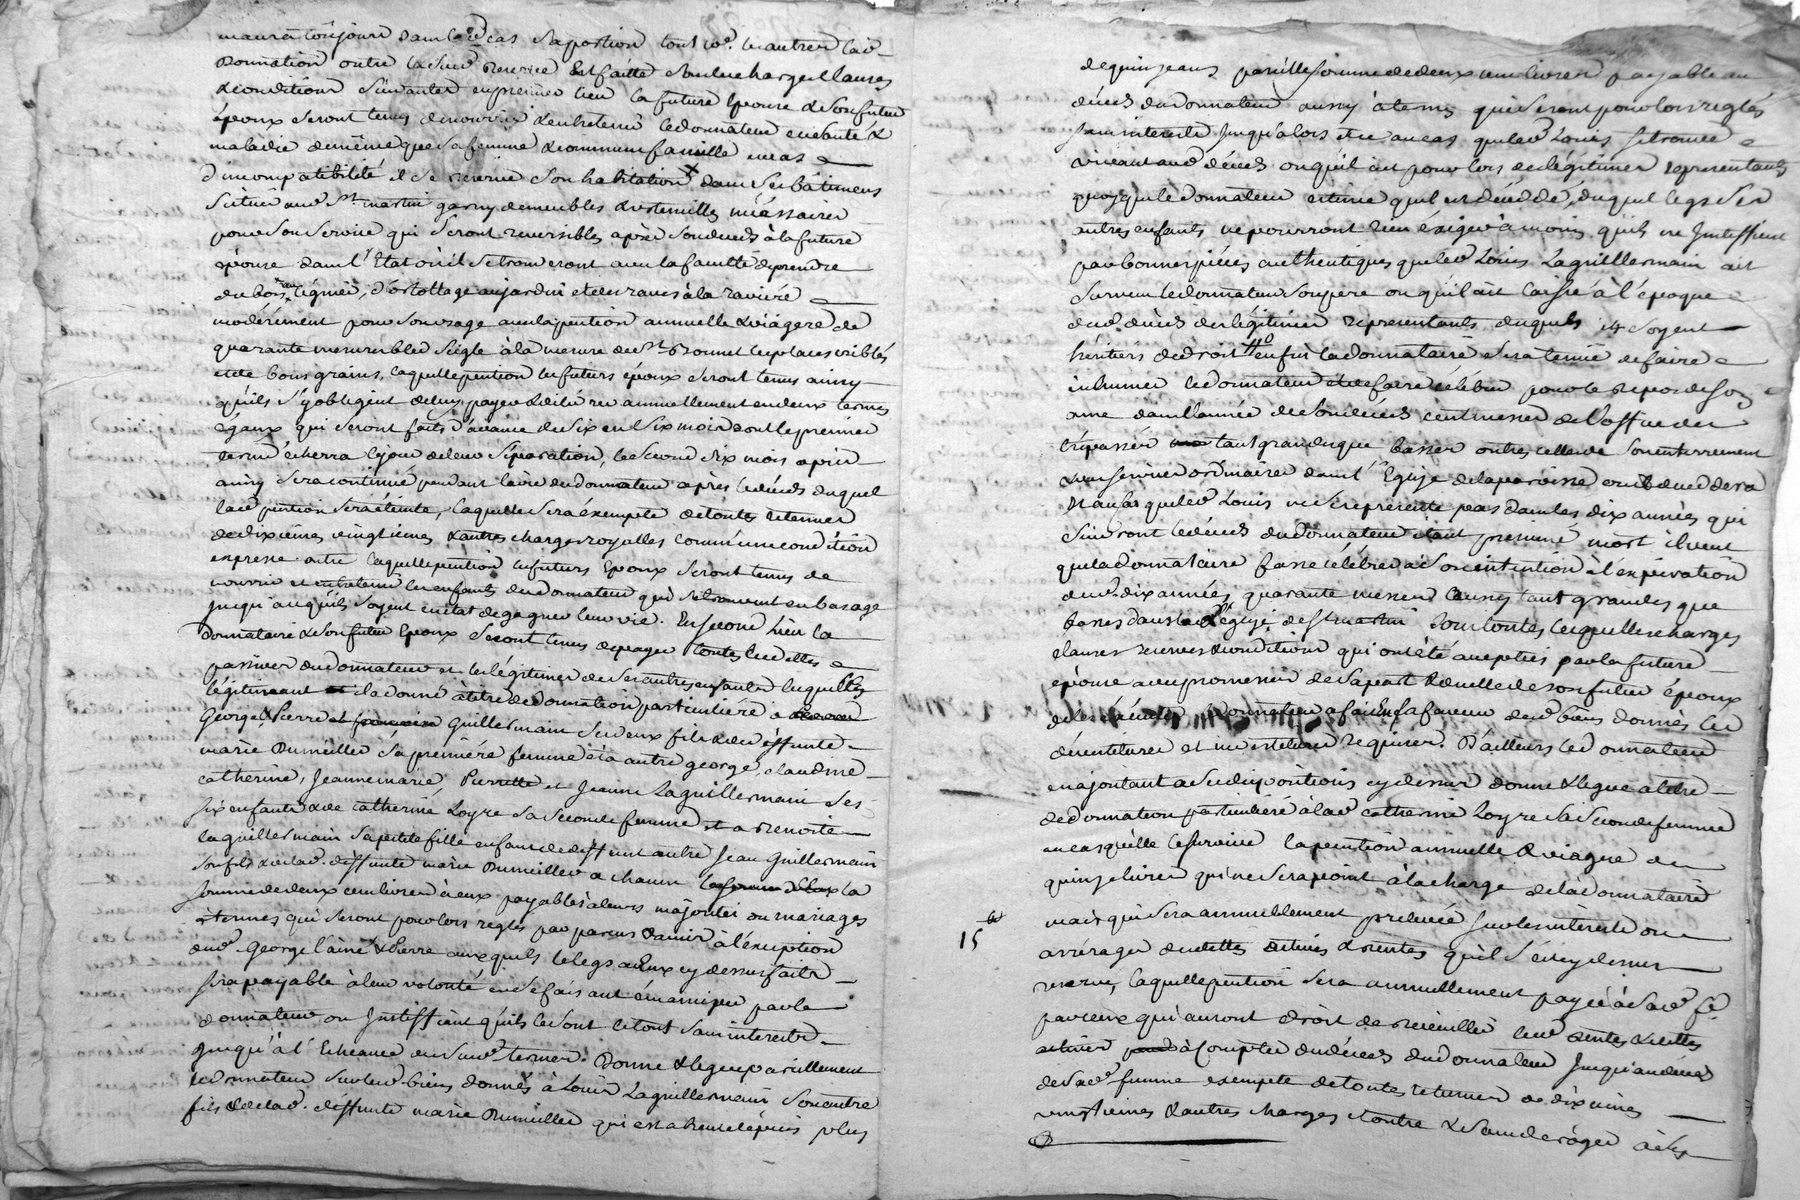 maura toujours dans led. cas sa portion tout cd. le autres lad.
donnation outre la sud. reserve est faitte sous les charges clauses
& conditions suivantes en premier lieu la future epouse & son futeur
époux seront tenus de nourrir & entretenir le donnateur en santé &
maladie de même que sa femme & commune famille en cas
d'incompatibilité il se reserve son habitation dans ses bâtimens
situés aud. St. martin garny de meubles & ustensilles nécéssaires
pour son service qui seront reversibles après son decès à la future
épouse dans l'Etat où ils se trouveront avec la faculté de prendre
du bois au légnier, d'ortollage au jardin et des raves à la ravière
modérement pour son usage avec la pention annuelle & viagere de
quarante mesures bled seigle à la mesure de St. Bonnet les places
et de bons grains, laquelle pention les futurs époux seront tenus ainsy
qu'ils s'y obligent de luy payer & délivrer annuellement en deux termes
égaux qui seront faits d'avance de six en six mois dont le premier
terme écherra le jour de leur séparation, le second six mois après
ainsy sera continué pendant la vie du donnateur après le décès duquel
lad. pention sera éteinte, laquelle sera éxempte de toutes retenues
de dixièmes vingtièmes & autres charges royalles comme une condition
expresse outre laquelle pention les futurs Epoux seront tenus de
nourrir et entretenir les enfants du donnateur qui se trouveront en bas age
jusqu'au qu'ils soyent en état de gagner leur vie. En second Lieu la
donnataire & son futeur Epoux seront tenus de payer toutes les dettes
passives du donnateur et les légitimes de ses autres enfants lesquelles
légitimeant il a donné à titre de donnation particulière à
George & Pierre et françoise Guillermain ses deux fils & de déffunte
marie Dumiller sa première femme & à autre george, claudine
catherine, Jeanne marie, Pierrette et Jeanne Laguillermain ses
six enfants & de catherine Loyre sa seconde femme et a Benoite
laguillermain sa petite fille enfant de deffunt autre Jean Guillermain
son fils & de lad. déffunte marie Dumiller a chacun la somme de la
somme de deux cens livres à eux payables à leurs majorités ou mariages
à termes qui seront pour lors reglés par parens & amis à l'éxeption
dud. George l'ainé & Pierre auxquels le legs a Eux cy dessus fait
sera payable à leur volonté en se faisant émanciper par le
donnateur ou Justiffiant qu'ils le sont le tout sans interests
jusqu'à l'Echeance desd. termes. Donne & legue pareillement
led. donnateur sur lesd. biens donnés à Louis Laguillermain son autre
fils & de lad. déffunte marie Dumiller qui est absent depuis plus
de quinze ans pareille somme de deux cens livres payable au
décès du donnateur aussy à termes qui seront pour lors reglés
sans interests jusqu'alors et ce au cas que led. Louis se trouve
vivant aud. décès ou qu'il ait pour lors de legitimes representants
quoyque le donnateur estime qu'il est décédé, duquel legs ses
autres enfants ne pourront rien éxiger à moins qu'ils ne Justiffient
par bonnes pièces authentiques que led. Louis Laguillermain ait
survecu le donnateur son pere ou qu'il ait laissé à l'époque
dud. décès des légitimes representants desquels ils soyent
héritiers de droit enfin la donnataire sera tenue de faire
inhumer le donnateur et de faire célébrer pour le repos de son
ame dans l'année de son décès cent messes de l'office des
trépassés tant grandes que basses outre celles de son enterrement
& un service ordinaires dans l'Eglise de la paroisse ou il decedera
Et au cas que led. Louis ne se represente pas dans les dix années qui
suivront le décès du donnateur étant présumé mort il veut
que la donnataire fasse célébrer à son intention à l'expiration
desd. dix années quarante messes aussy tant grandes que
basses dans lad. Eglise de St martin sous toutes lesquelles charges
clauses reserves & conditions qui ont été acceptées par la future
épouse avec promesse de sa part & de celle de son futeur époux
de les éxécuter le donnateur a fait en sa faveur desd. biens donnés les
dévestitures et investitures requises. D'ailleurs led. donnateur
en ajoutant a ses dispositions cy dessus donne & legue à titre
de donnation particuliere à lad. catherine Loyre sa seconde femme
au cas qu'elle le survive la pention annuelle & viagere de
quinze livres qui ne sera point à la charge de la donnataire
15
mais qui sera annuellement prélevée sur les interests ou
arrérages des dettes actives & rentes qu'il s'est cy dessus
reservé, laquelle pention sera annuellement payée à sad. fe.
par ceux qui auront droit de receuillir lesd. rentes & dettes
actives à compter du décès du donnateur Jusqu'au decès
de sad. femme exempte de toutes retenues de dixièmes
vingtièmes & autres charges & outre & sans deroger à ses